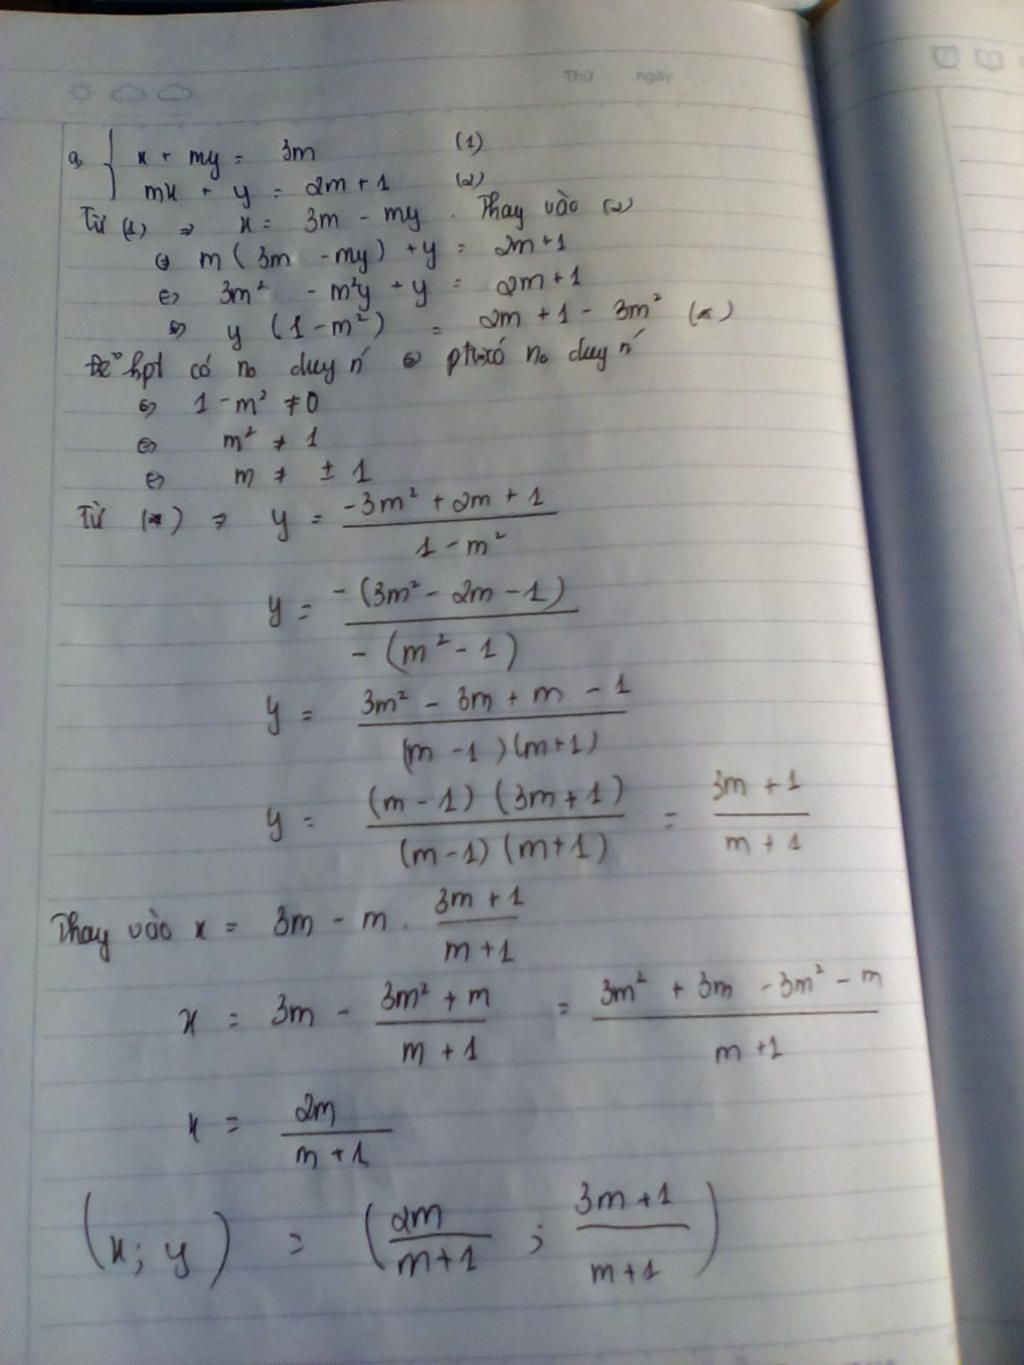 Thứ ngày
a, { x + my = 3m (1)
mx + y = 2m + 1 (2)
Từ (1) => x = 3m - my. Thay vào (2)
<=> m(3m - my) + y = 2m+1
<=> 3m² - m²y + y = 2m+1
<=> y (1-m²) = 2m + 1 - 3m² (*)
Để hpt có no duy n´ <=> pt có no duy n´
<=> 1 - m² ≠ 0
<=> m² ≠ 1
<=> m ≠ ± 1
Từ (*) => y = (-3m² + 2m + 1) / (1 - m²)
y = -(3m² - 2m - 1) / -(m² - 1)
y = (3m² - 3m + m - 1) / (m - 1)(m+1)
y = (m - 1)(3m+1) / (m-1)(m+1) = (3m + 1) / (m + 1)
Thay vào x = 3m - m . (3m + 1) / (m + 1)
x = 3m - (3m² + m) / (m + 1) = (3m² + 3m - 3m² - m) / (m+1)
x = 2m / (m + 1)
(x; y) = (2m / (m+1) ; (3m+1) / (m+1))